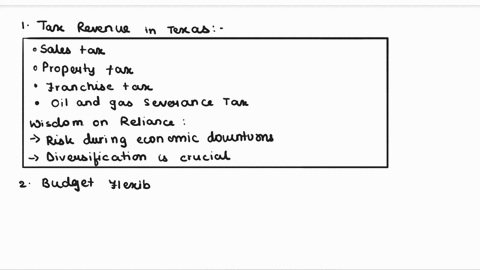 1. Tax Revenue in Texas:-
• Sales tax
• Property tax
• Franchise tax
• Oil and gas Severance Tax
Wisdom on Reliance :
→ Risk during economic downturns
→ Diversification is crucial
2. Budget flexib